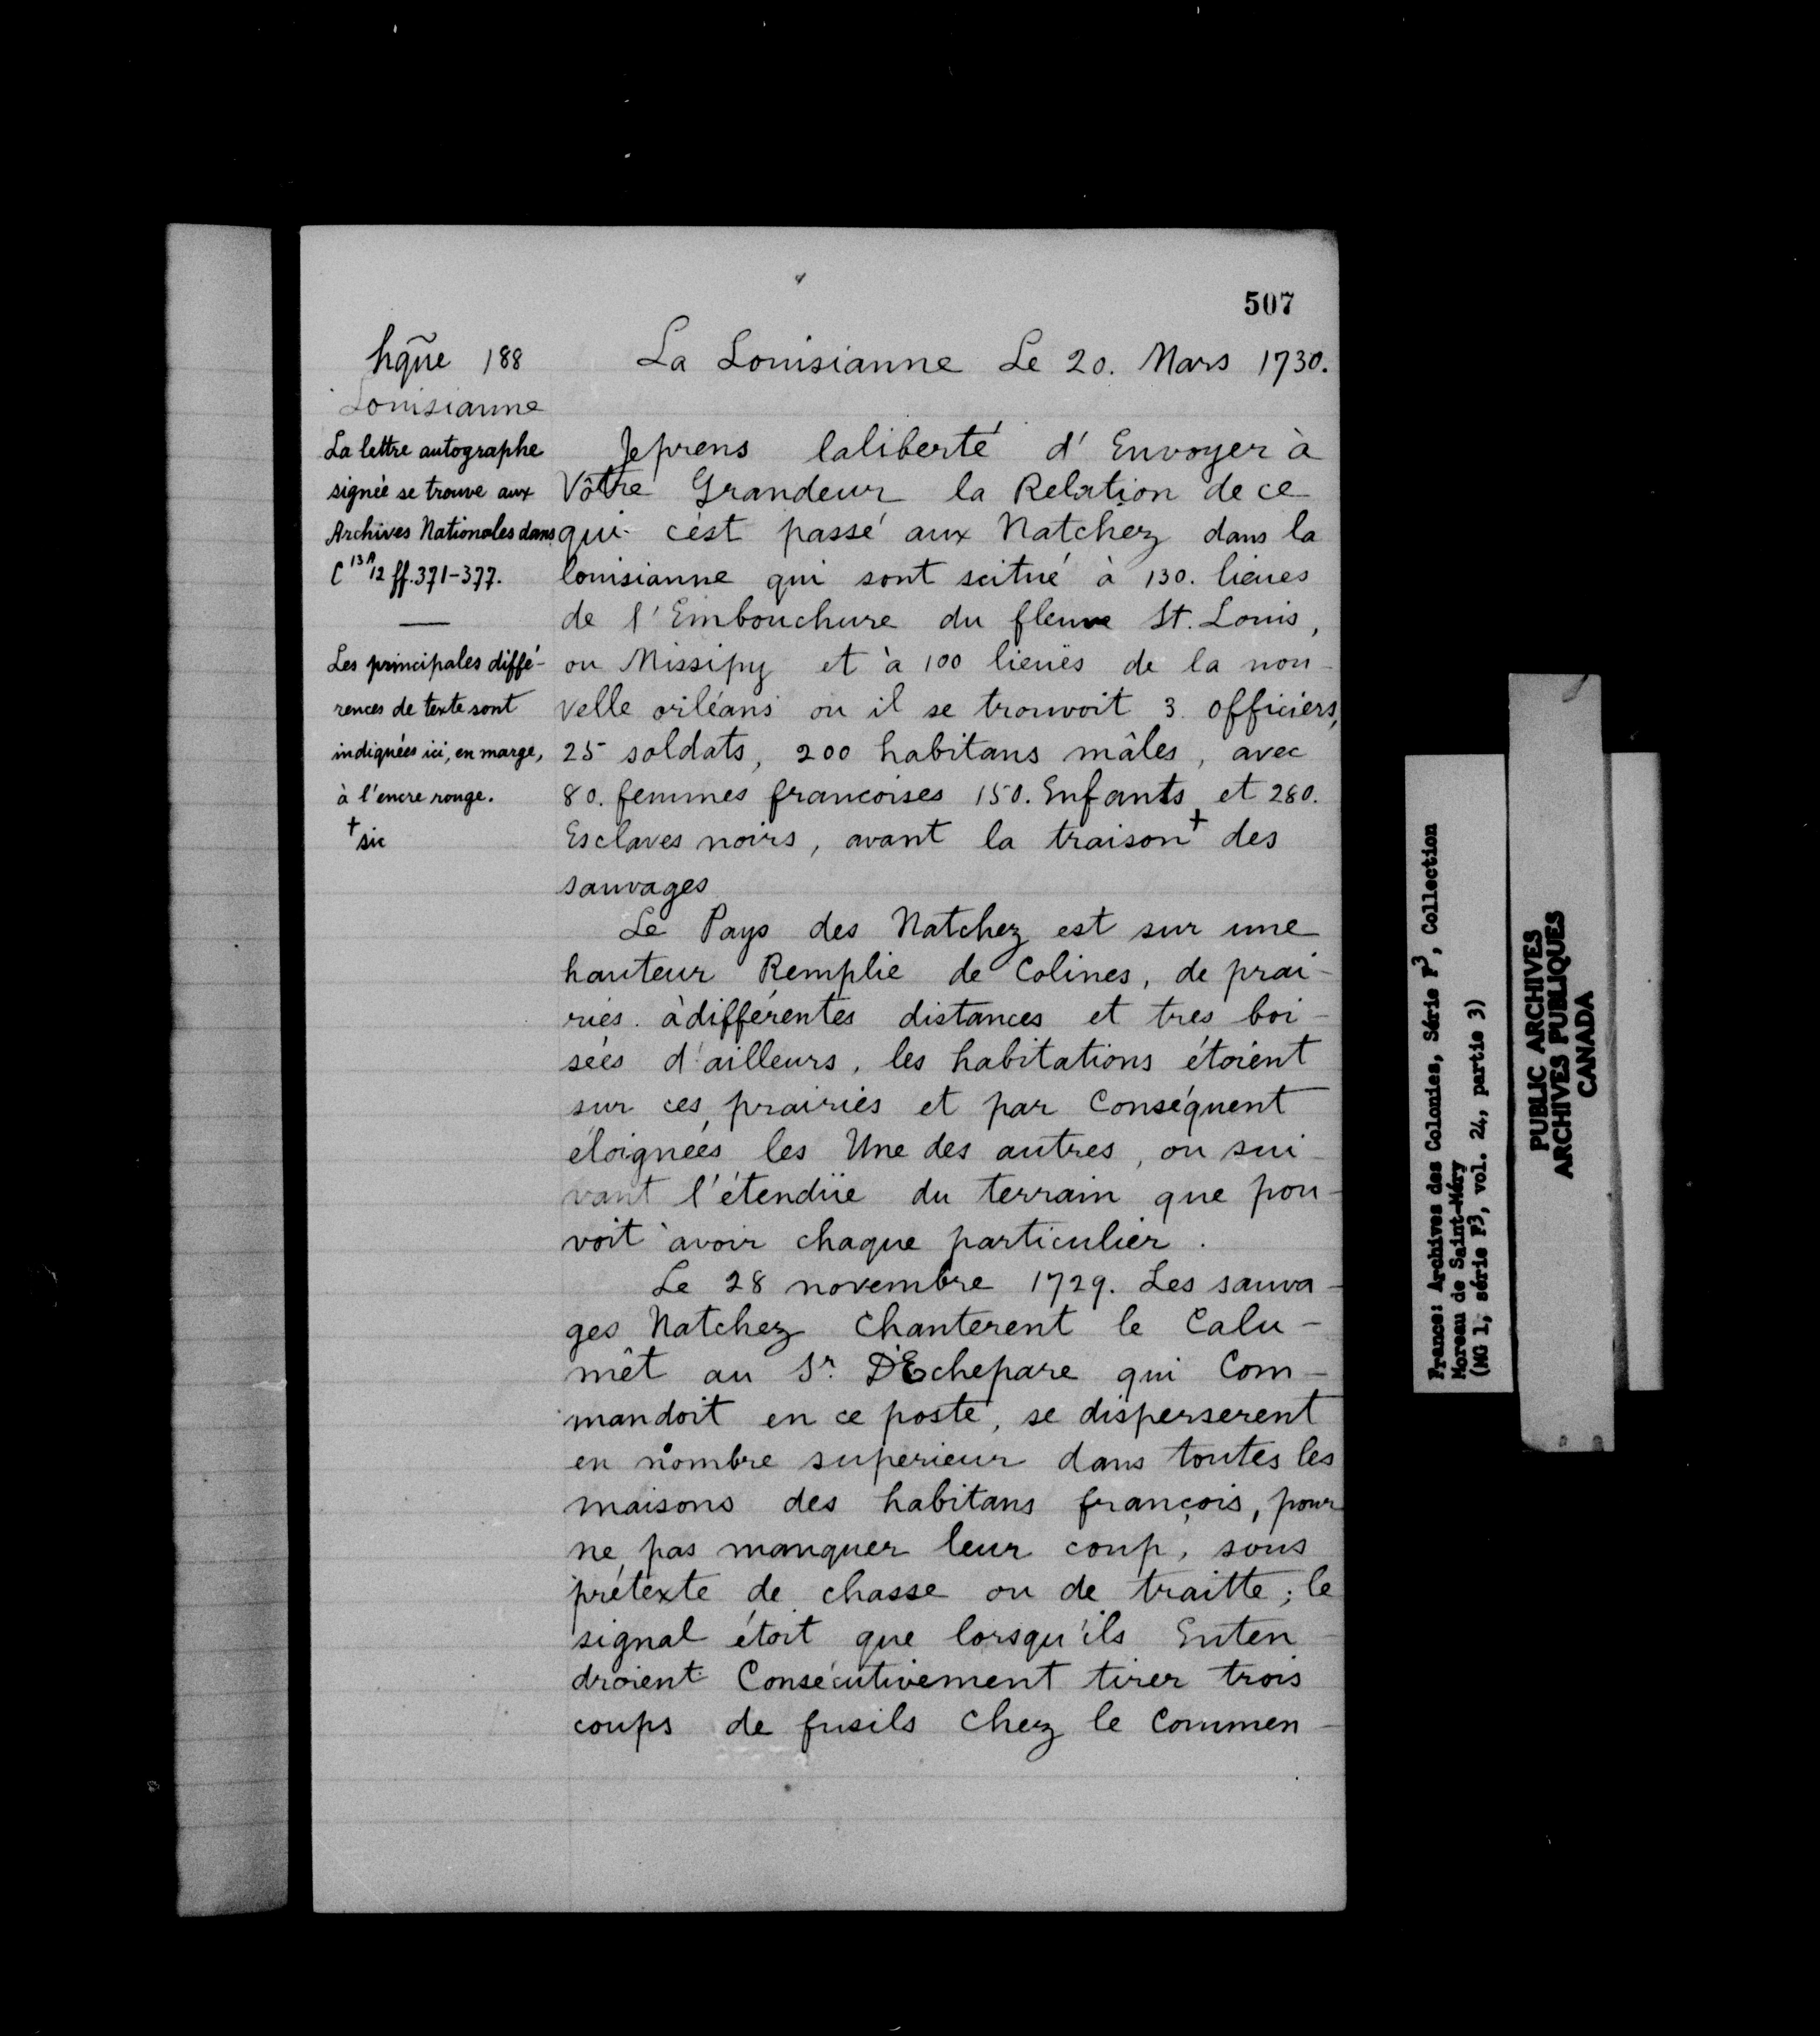 507
hq̃ue 188
Louisianne
La lettre autographe
signée se trouve aux
Archives Nationales dans
C 13A 12 ff. 371-377.
Les principales diffé-
rences de texte sont
indiquées ici, en marge,
à l'encre rouge.
+ sic
La Louisianne Le 20. Mars 1730.
Je prens laliberté d'Envoyer à
Vôtre Grandeur la Relation de ce
qui c'est passé aux Natchez dans la
louisianne qui sont scitué à 130. lieues
de l'Embouchure du fleuve St. Louis,
ou Missipy et à 100 lieuës de la nou-
velle orléans ou il se trouvoit 3. officiers,
25 soldats, 200 habitans mâles, avec
80. femmes francoises 150. Enfants et 280.
Esclaves noirs, avant la traison+ des
sauvages
Le Pays des Natchez est sur une
hauteur Remplie de Colines, de prai-
ries. àdifférentes distances et tres boi-
sées d'ailleurs, les habitations étoient
sur ces prairies et par Conséquent
éloignées les Une des autres, ou sui-
vant l'étendüe du terrain que pou-
voit avoir chaque particulier.
Le 28 novembre 1729. Les sauva-
ges Natchez Chanterent le Calu-
mêt au Sr. D'Echepare qui Com-
mandoit en ce poste, se disperserent
en nombre superieur dans toutes les
maisons des habitans françois, pour
ne pas manquer leur coup, sous
prétexte de chasse ou de traitte; le
signal étoit que lorsqu'ils Enten-
droient Consécutivement tirer trois
coups de fusils chez le Commen-
France: Archives des Colonies, Série F3, Collection
Moreau de Saint-Méry
(MG 1, série F3, vol. 24, partie 3)
PUBLIC ARCHIVES
ARCHIVES PUBLIQUES
CANADA